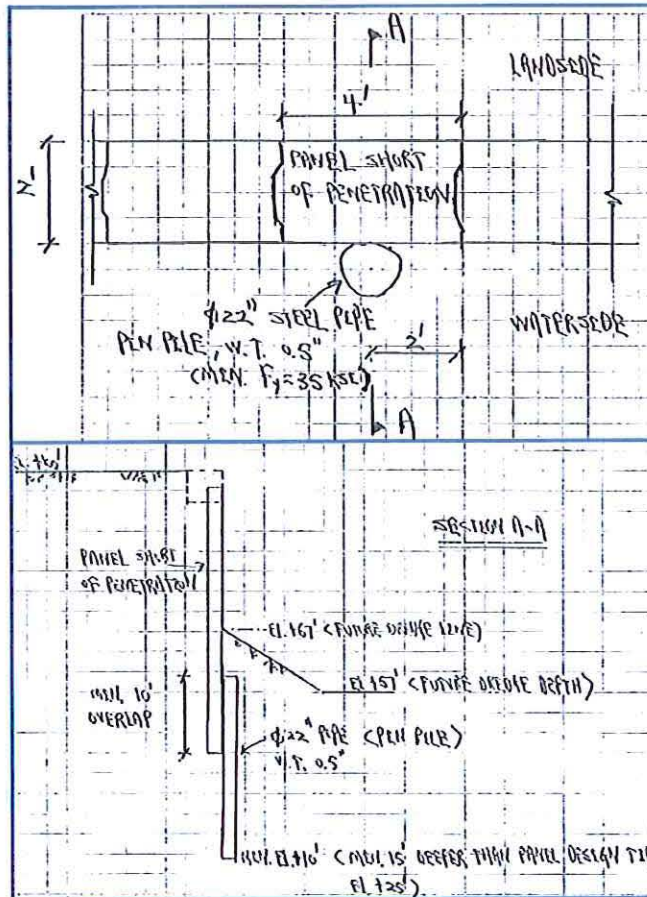 A
LANDSIDE
4'
PANEL SHORT
OF PENETRATION
Φ22" STEEL PIPE
PIN PILE, W.T. 0.5"
(MIN. Fy=35 KSI)
WATERSIDE
2'
A
SECTION A-A
PANEL SHORT
OF PENETRATION
EL+67' (FUTURE DREDGE LINE)
EL+57' (FUTURE DREDGE DEPTH)
MIN. 10'
OVERLAP
Φ22" PIPE (PIN PILE)
W.T. 0.5"
MIN. EL+10' (MIN. 15' DEEPER THAN PANEL DESIGN TI
EL+25')